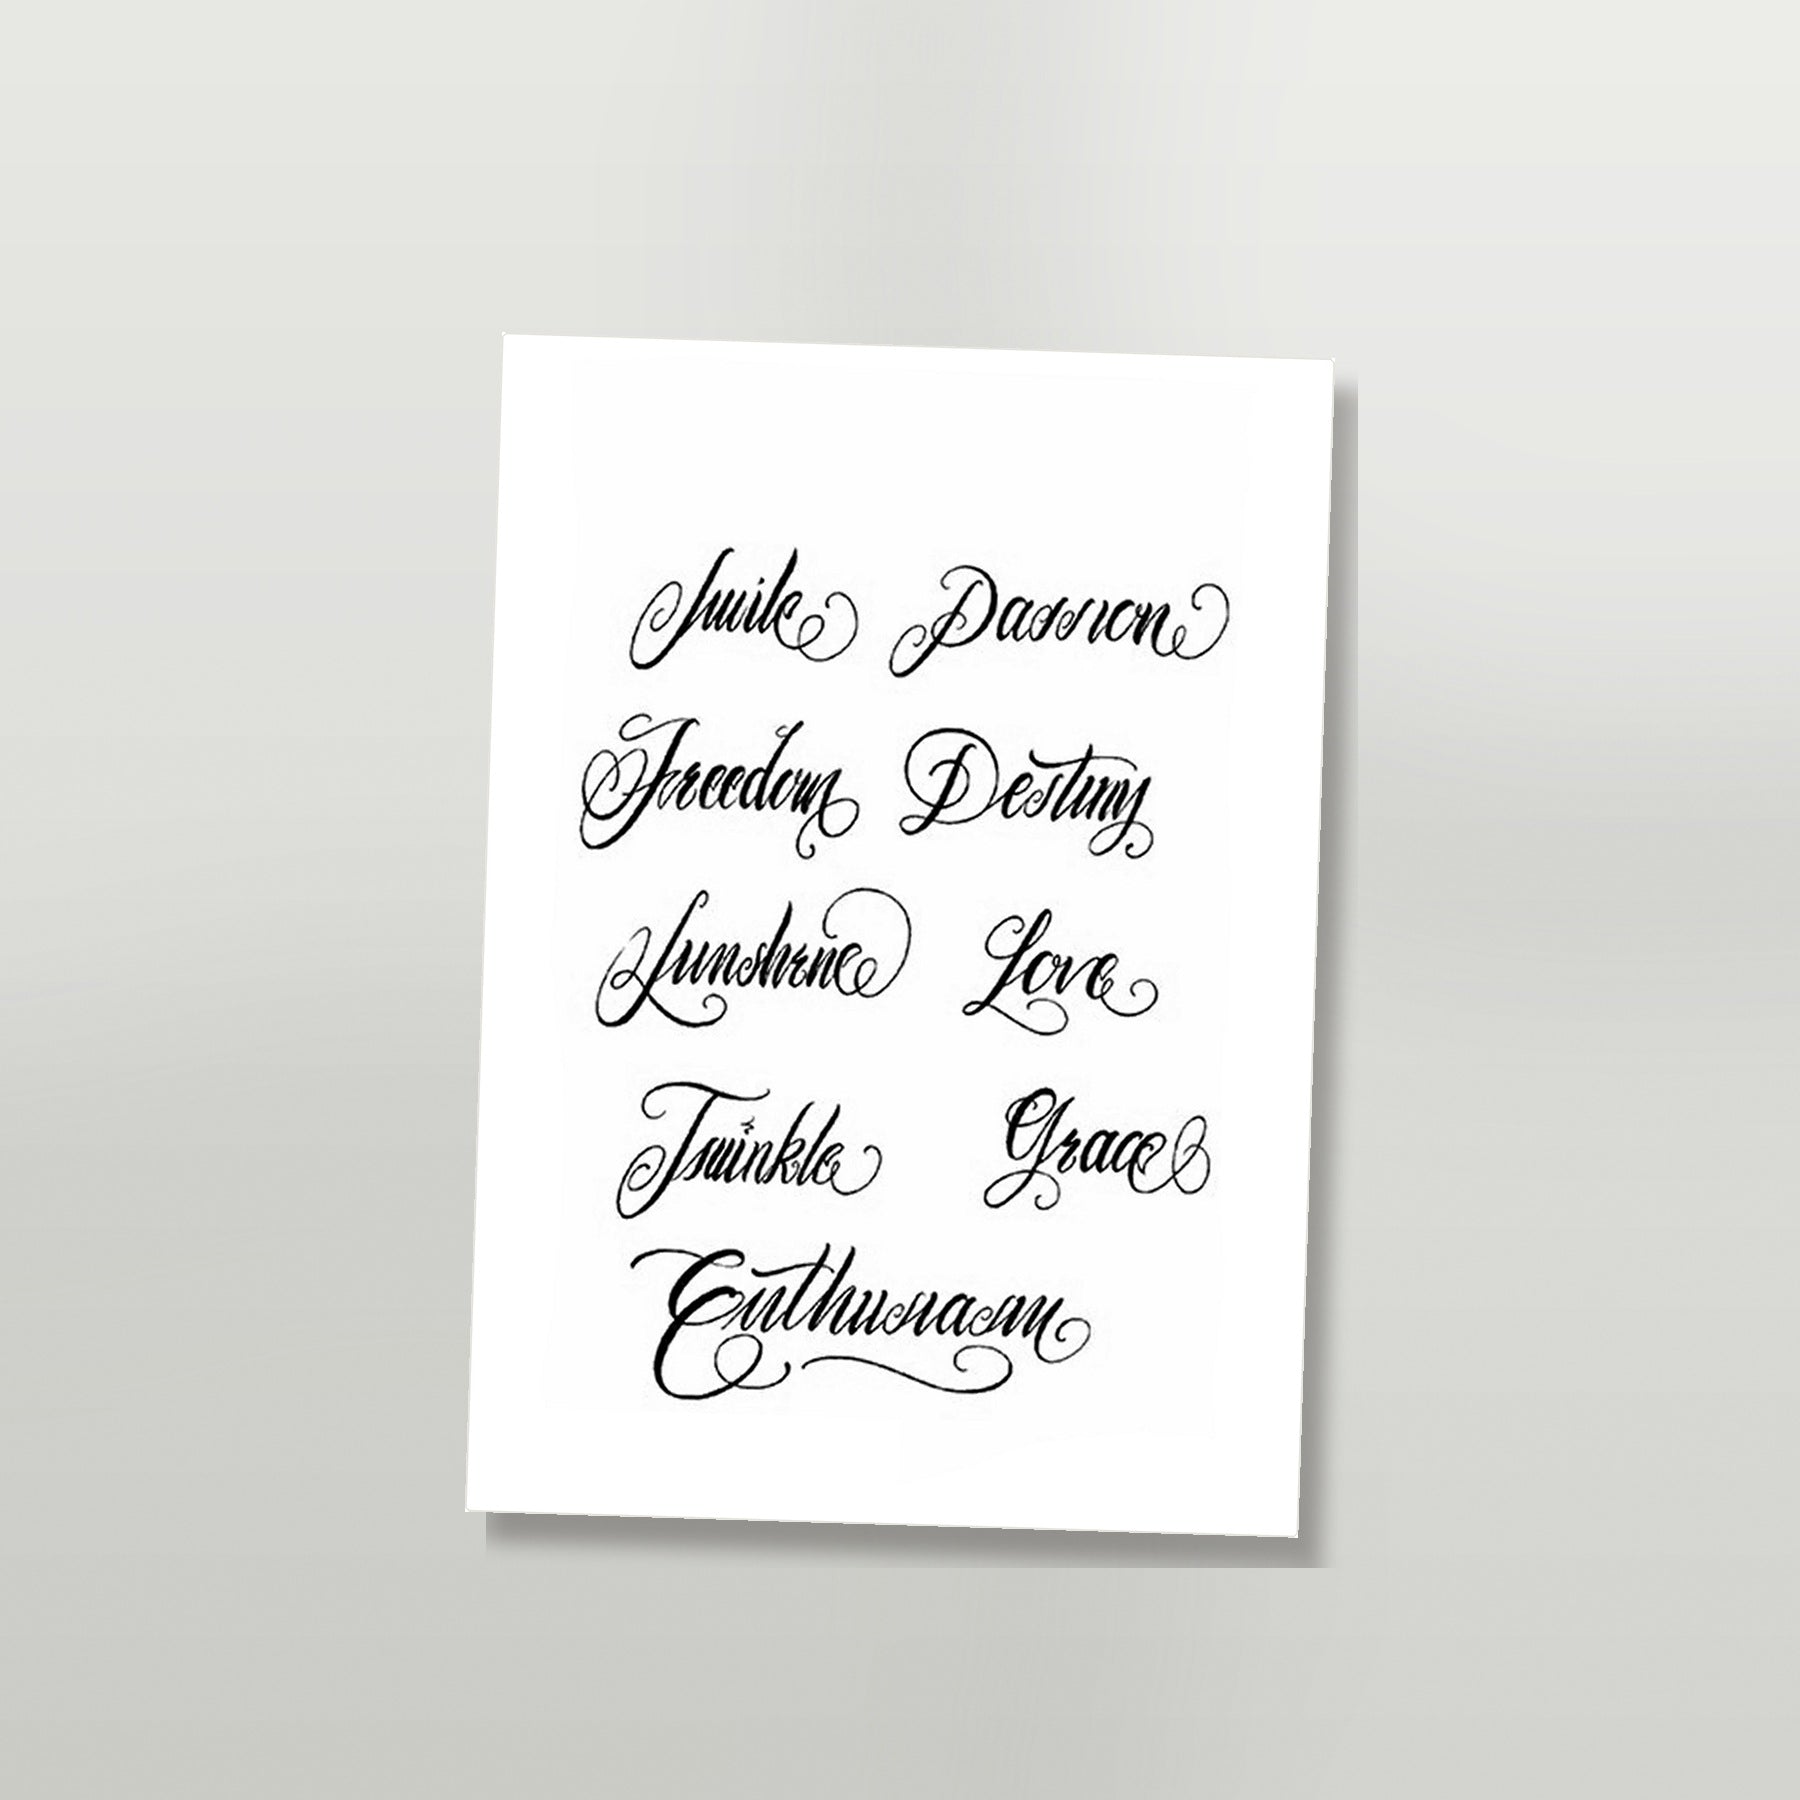 Smile Passion
Freedom Destiny
Sunshine Love
Twinkle Grace
Enthusiasm